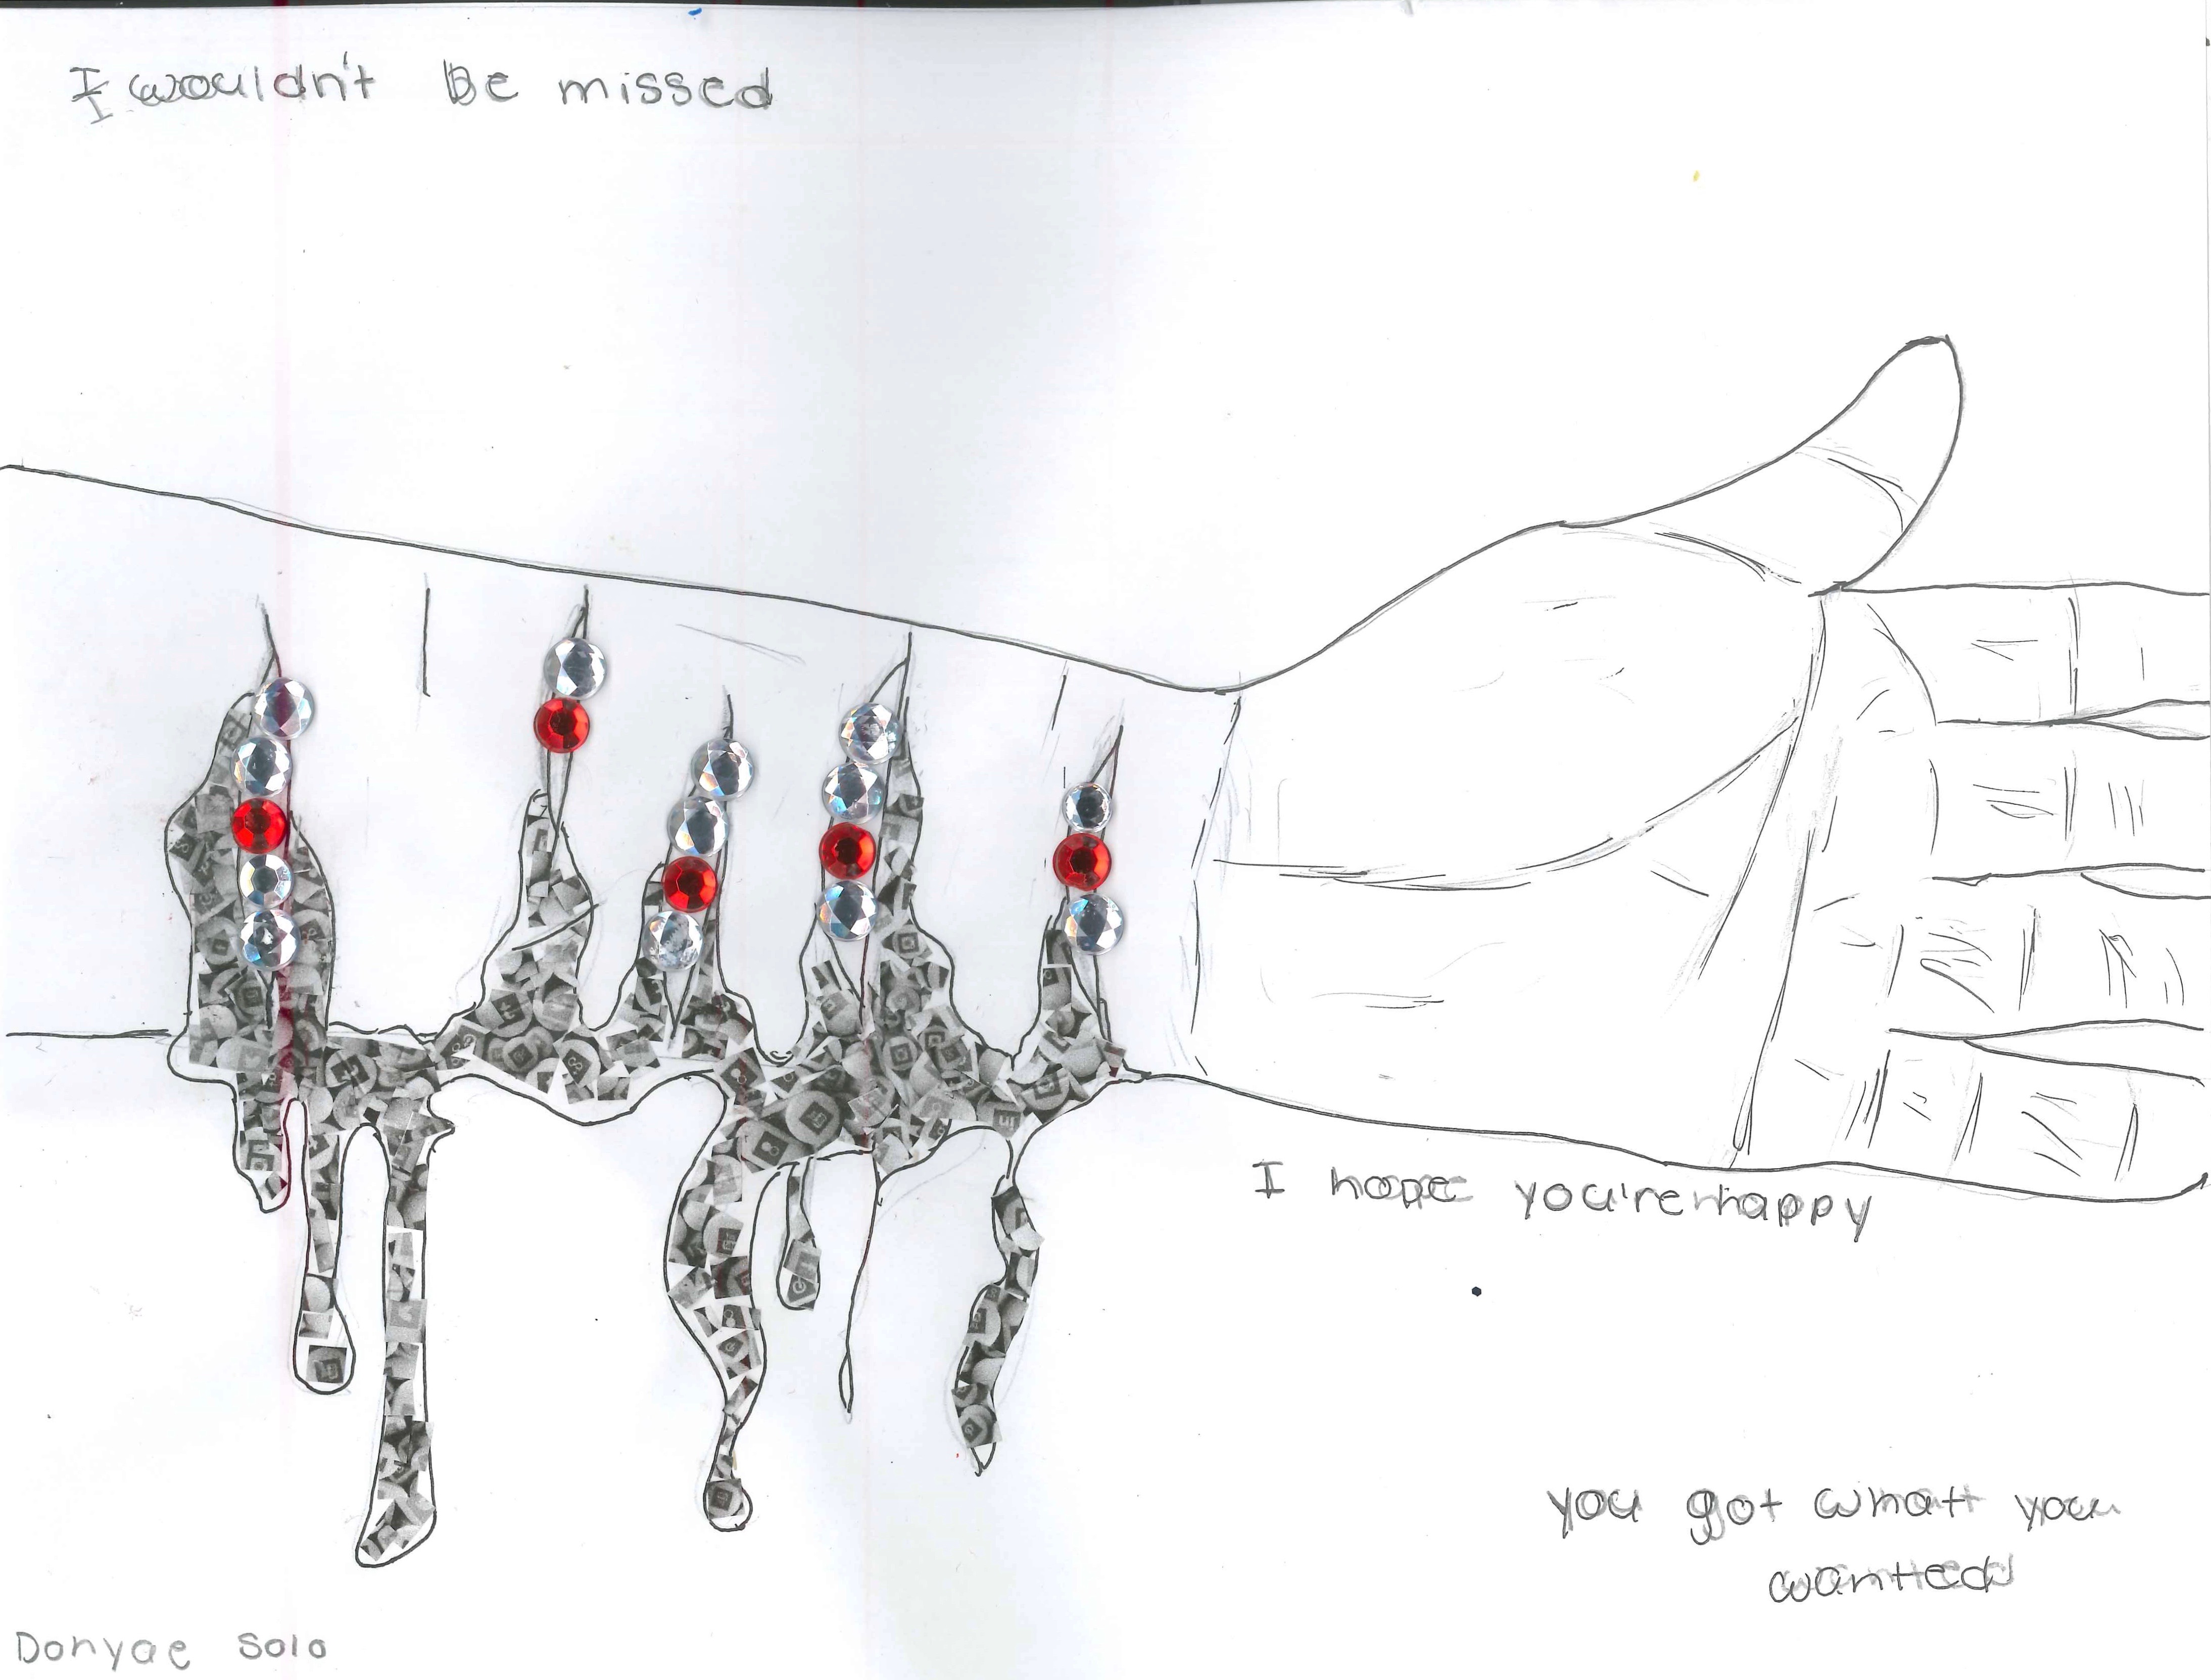 I wouldn't Be missed
I hope you're happy
you got what you
wanted
Donyae Solo